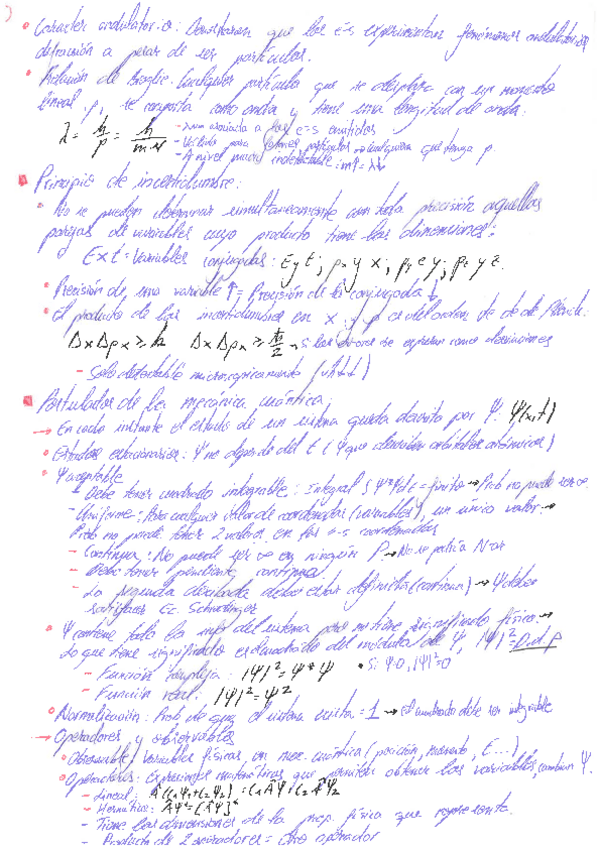 • Carácter ondulatorio: Demostraron que los e-s experimentan fenómenos ondulatorios
difracción a pesar de ser partículas.
• Relación de Broglie: Cualquier partícula que se desplaza con un momento
lineal, p, se comporta como onda y tiene una longitud de onda:
λ = h/p = h/m·v - λ asociada a los e-s emitidos
- Válido para partículas cualquiera que tenga p
- A nivel macro indetectable: m↑ = λ↓
Principio de incertidumbre:
• No se pueden determinar simultáneamente con toda precisión aquellas
parejas de variables cuyo producto tiene las dimensiones:
E x t = Variables conjugadas: E y t; px y x; py e y; pz y z.
• Precisión de una variable ↑ = Precisión de la conjugada ↓
• El producto de las incertidumbres en x y p es del orden de cte de de Planck:
Δx Δpx ≥ ħ Δx Δpx ≥ ħ/2 → si los errores se expresan como desviaciones
- Solo detectable microscópicamente
Postulados de la mecánica cuántica
→ En cada instante el estado de un sistema queda descrito por Ψ. Ψ(x,t)
• Estados estacionarios: Ψ no depende del t (Ψ que describen orbitales atómicos)
• Ψ aceptable
- Debe tener cuadrado integrable: Integral ∫Ψ*Ψdτ = finito → Prob no puede ser ∞
- Uniforme: Para cualquier valor de coordenadas (variables), un único valor →
Prob no puede tener 2 valores en las coordenadas
- Continua: No puede ser ∞ en ningún P → No se podría N·ar
- Debe tener pendiente continua
- La segunda derivada debe estar definida (continua) → Ψ debe
satisfacer Ec. Schrödinger
• Ψ contiene toda la info del sistema pero no tiene significado físico →
Lo que tiene significado es el cuadrado del módulo de Ψ, |Ψ|² = D.d.P
- Función compleja: |Ψ|² = Ψ*Ψ • Si Ψ=0, |Ψ|²=0
- Función real: |Ψ|² = Ψ²
• Normalización: Prob de que el sistema exista = 1 → el cuadrado debe ser integrable
→ Operadores y observables
• Observable: Variables físicas en mec. cuántica (posición, momento, E...)
• Operadores: Expresiones matemáticas que permiten obtener las variables, cambian Ψ.
- Lineal: Â(c₁Ψ₁+c₂Ψ₂) = c₁ÂΨ₁+c₂ÂΨ₂
- Hermítico: ÂΨ = [ÂΨ]*
- Tiene las dimensiones de la prop. física que representa.
- Producto de 2 operadores = Otro operador